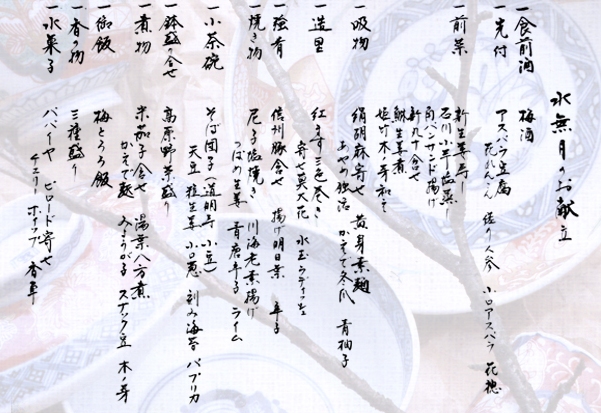 水無月のお献立
一食前酒 梅酒
一先付 アスパラ豆腐
花れんこん 捻り人参 小口アスパラ 花穂
一前菜 新生姜寿し
石川小芋塩蒸し
南パンサンド揚げ
新丸十含せ
鰍生姜煮
姫竹木ノ芽和え
一吸物 絹胡麻寄せ 黄身素麺
あやめ独活 かえで冬瓜 青柚子
一造里 紅ます三色巻き
寄せ莫大花 水玉ラディッシュ
一強肴 信州豚含せ 揚げ明日葉 辛子
一焼き物 尼子塩焼き 川海老素揚げ
つばめ生姜 青唐辛子 ライム
一小茶碗 そば団子(道明寺 小豆)
天豆 桂生姜 小口葱 刻み海苔 パプリカ
一鉢盛り合せ 高原野菜盛り
一煮物 米茄子含せ 湯葉八方煮
かえで麩 みょうが子 スナック豆 木ノ芽
一御飯 梅とろろ飯
一香の物 三種盛り
一水菓子 パパイーヤ ビロード寄せ
チェリー ホイップ 香草